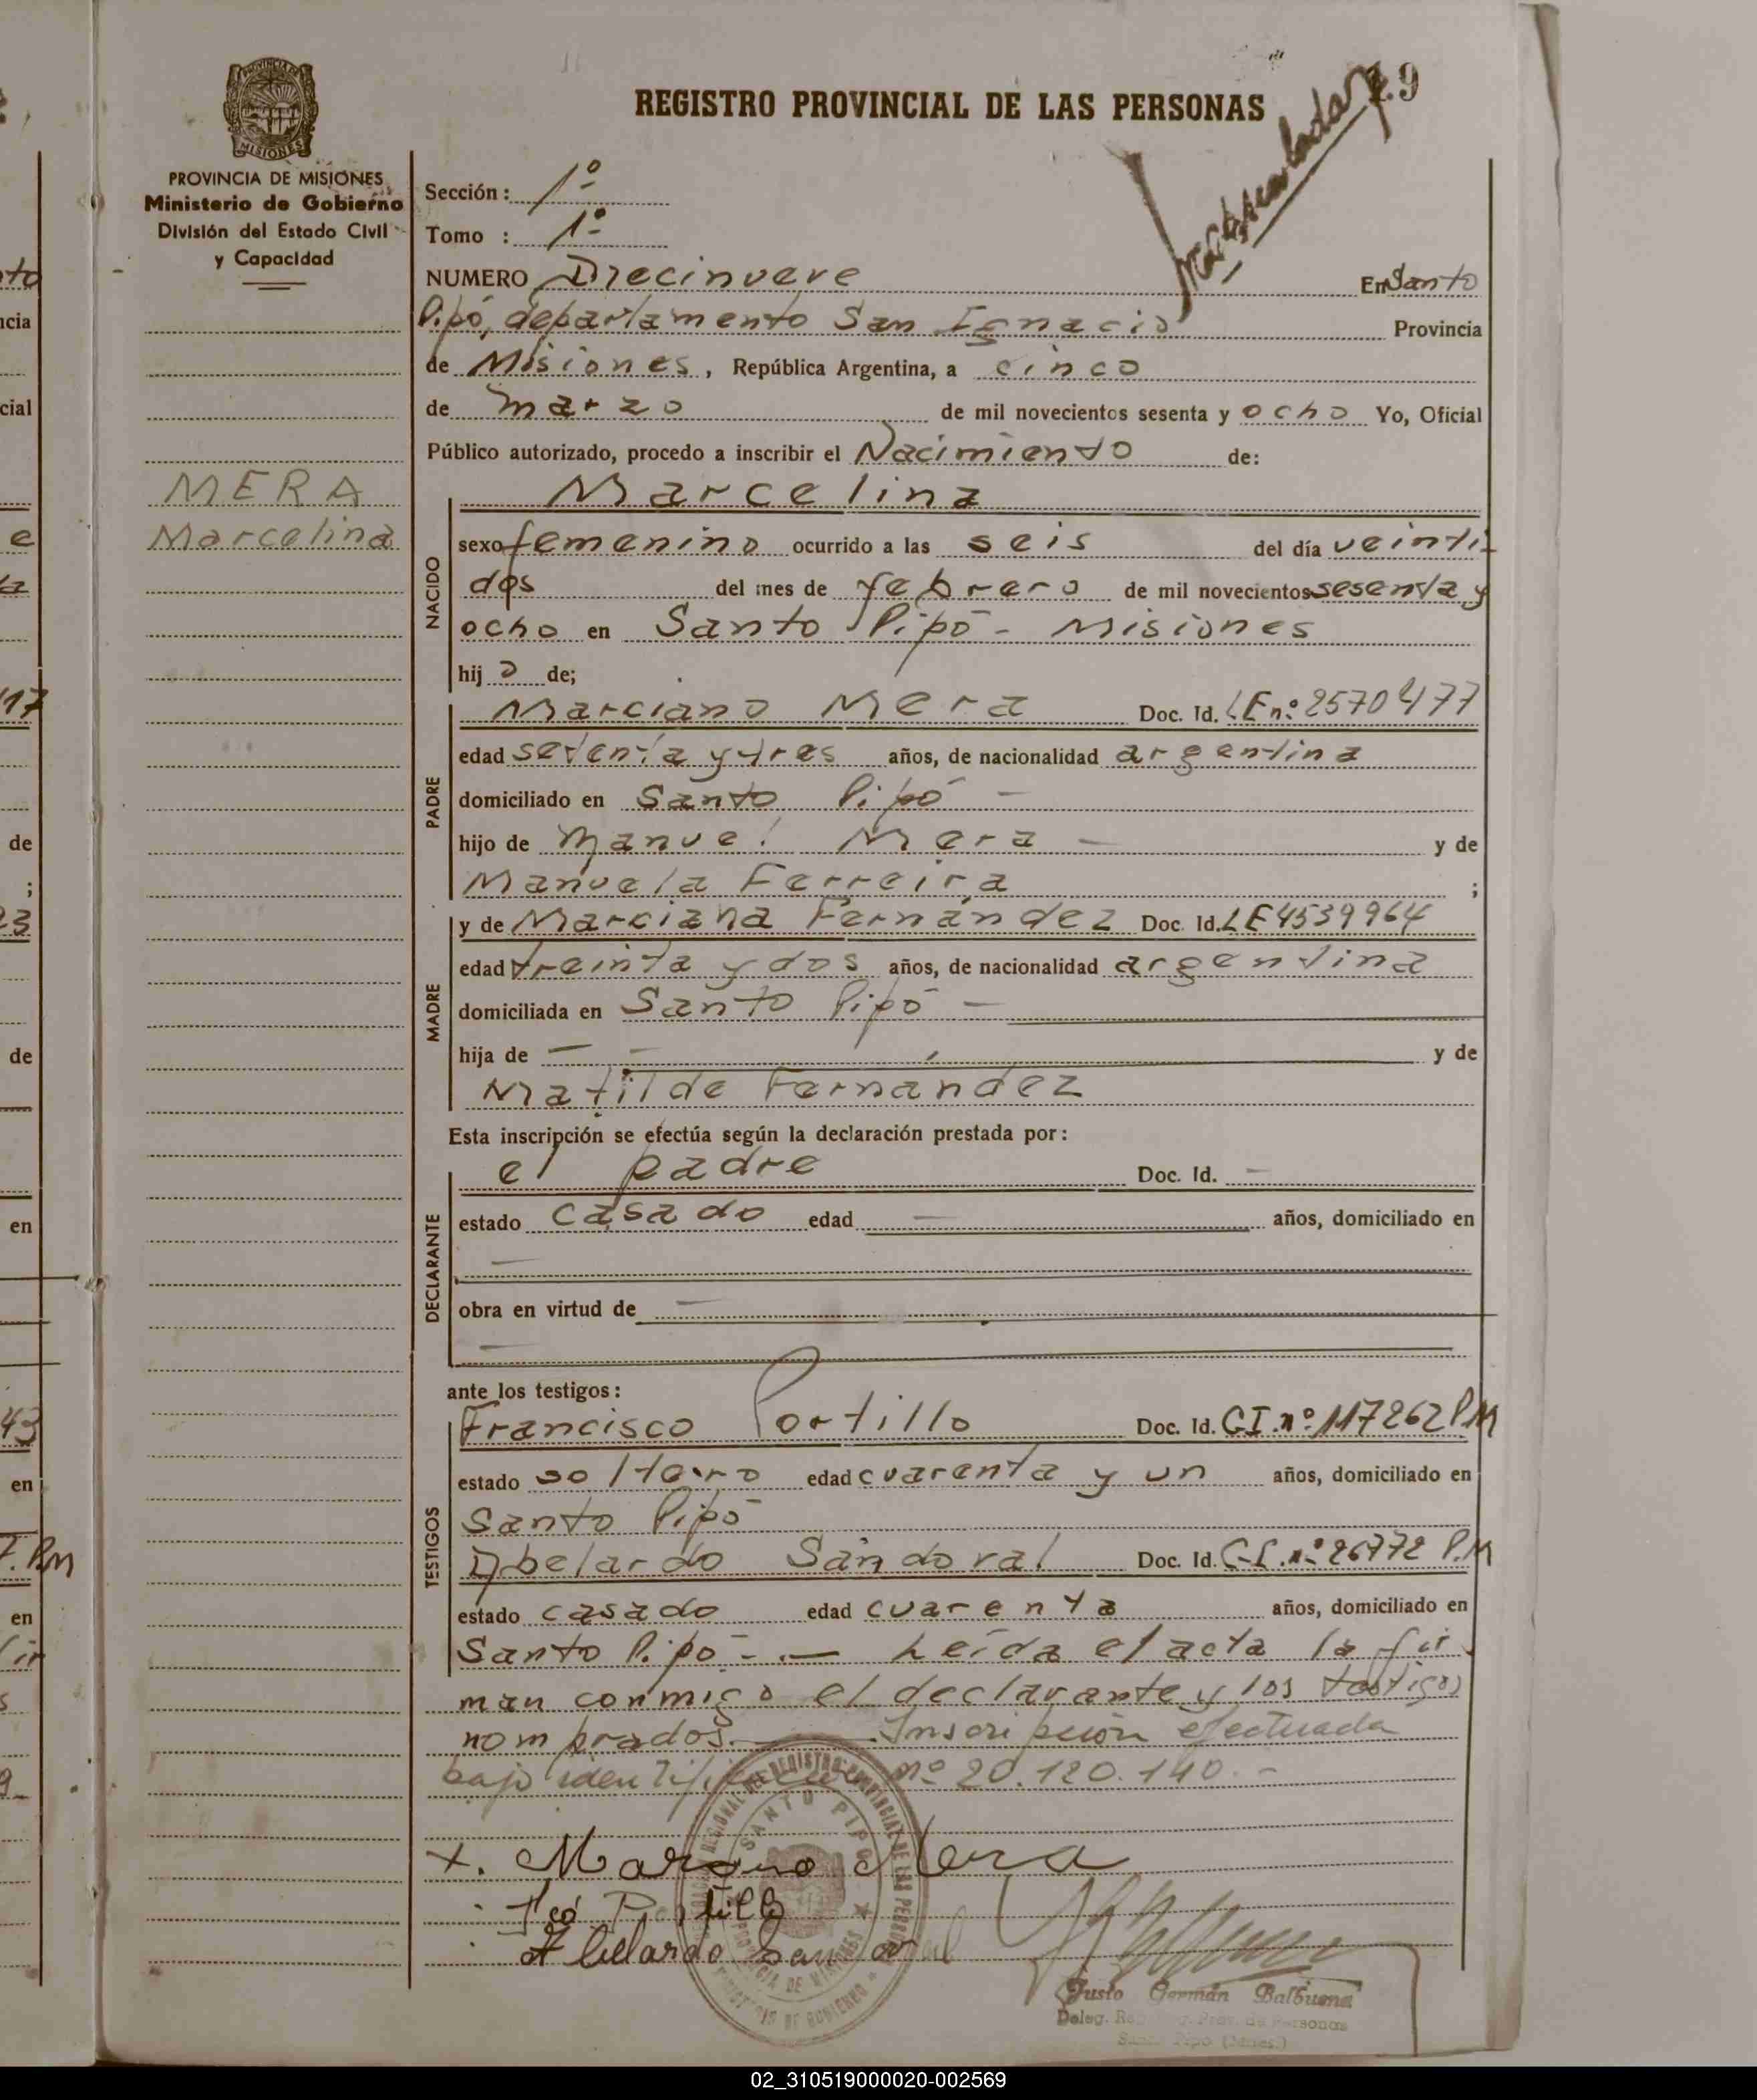 REGISTRO PROVINCIAL DE LAS PERSONAS
9
PROVINCIA DE MISIONES
Ministerio de Gobierno
División del Estado Civil
y Capacidad
MERA
Marcelina
Sección: 1º
Tomo : 1º
NUMERO Diecinueve En Santo
Pipó, departamento San Ignacio Provincia
de Misiones, República Argentina, a cinco
de marzo de mil novecientos sesenta y ocho Yo, Oficial
Público autorizado, procedo a inscribir el Nacimiento de:
NACIDO
Marcelina
sexo femenino ocurrido a las seis del día veinti
dos del mes de febrero de mil novecientos sesenta y
ocho en Santo Pipó - Misiones
hij a de;
PADRE
Marciano Mera Doc. Id. LE nº 2570477
edad setenta y tres años, de nacionalidad argentina
domiciliado en Santo Pipó -
hijo de Manuel Mera - y de
Manuela Ferreira ;
MADRE
y de Marciana Fernández Doc. Id. LE 4539964
edad treinta y dos años, de nacionalidad argentina
domiciliada en Santo Pipó -
hija de - - y de
Matilde Fernandez
Esta inscripción se efectúa según la declaración prestada por:
DECLARANTE
el padre Doc. Id. -
estado casado edad - años, domiciliado en
-
obra en virtud de -
-
ante los testigos:
TESTIGOS
Francisco Portillo Doc. Id. CI. nº 117262 P.M
estado soltero edad cuarenta y un años, domiciliado en
Santo Pipó
Abelardo Sandoval Doc. Id. C.I. nº 26772 P.M
estado casado edad cuarenta años, domiciliado en
Santo Pipó - . — Leída el acta la fir
man conmigo el declarante y los testigos
nombrados. — Inscripción efectuada
bajo identificación nº 20.120.140. -
SANTO PIPO
x. Mera
Abelardo Sandoval
Justo Germán Balbuena
Deleg. Personas
02_310519000020-002569